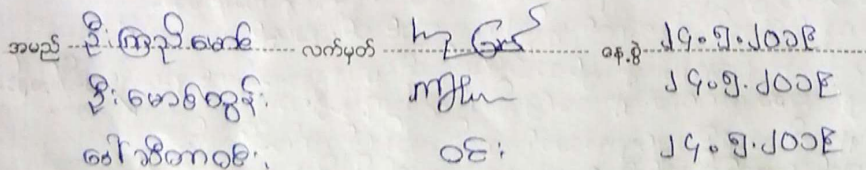 အမည် ဦးကြည်မောင် လက်မှတ် နေ့စွဲ ၂၄.၅.၂၀၁၉
ဦးမောင်ထွန်း ၂၄.၅.၂၀၁၉
ဒေါ်သီတာဝင်း ဝင်း ၂၄.၅.၂၀၁၉